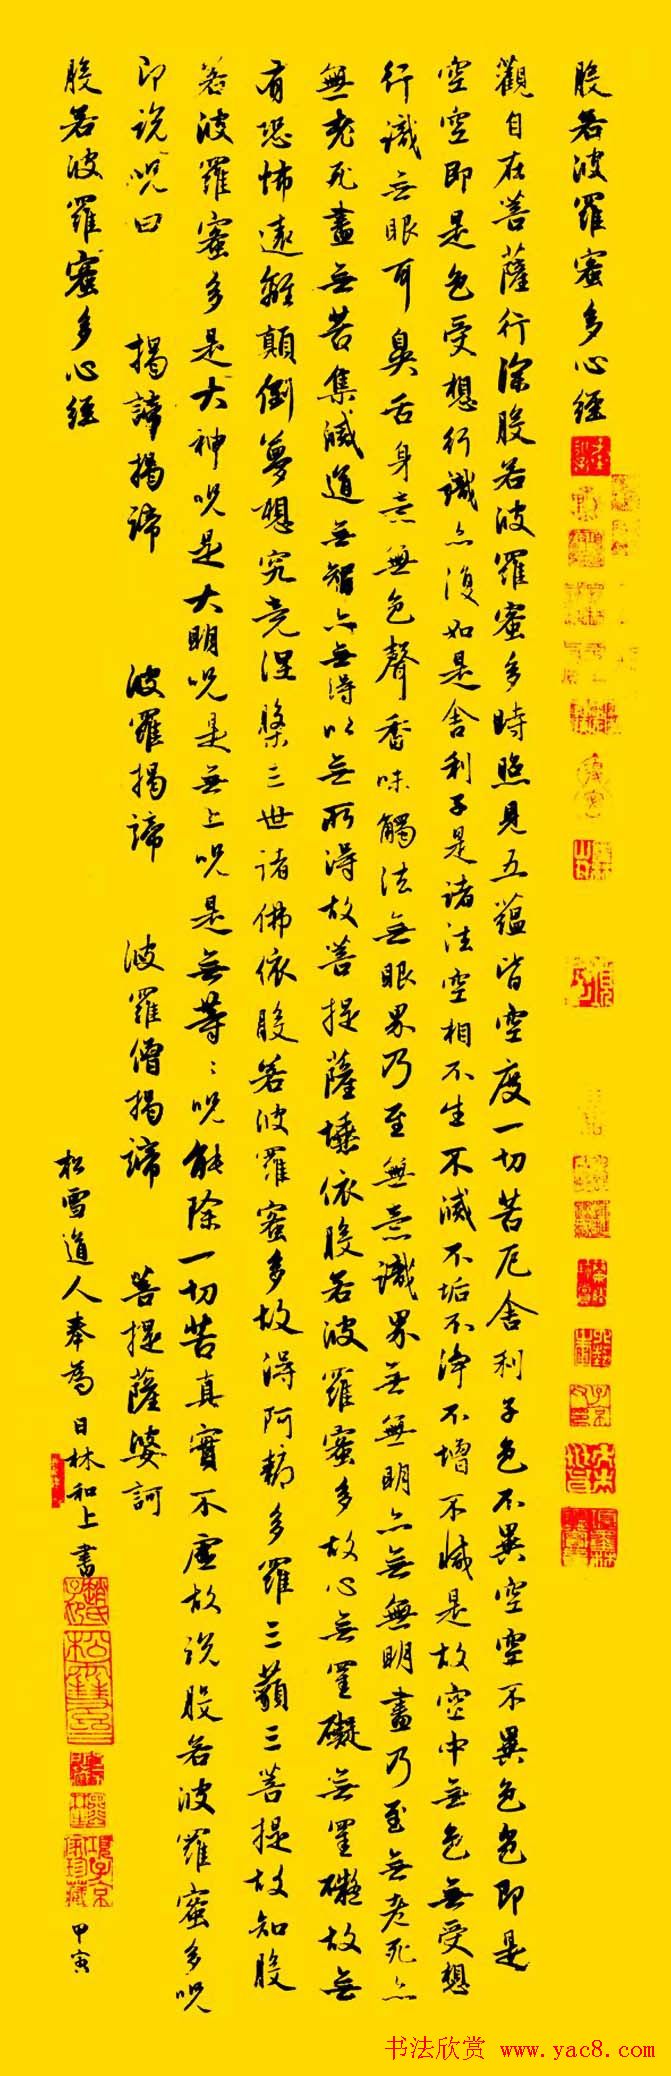 般若波羅蜜多心經
觀自在菩薩行深般若波羅蜜多時照見五蘊皆空度一切苦厄舍利子色不異空空不異色色即是
空空即是色受想行識亦復如是舍利子是諸法空相不生不滅不垢不淨不增不減是故空中無色無受想
行識无眼耳鼻舌身意無色聲香味觸法無眼界乃至無意識界无無明亦无無明盡乃至無老死亦
無老死盡无苦集滅道無智亦無得以无所得故菩提薩埵依般若波羅蜜多故心无罣礙無罣礙故無
有恐怖遠離顛倒夢想究竟涅槃三世諸佛依般若波羅蜜多故得阿耨多羅三藐三菩提故知般
若波羅蜜多是大神呪是大明呪是無上呪是無等〻呪能除一切苦真實不虛故說般若波羅蜜多呪
即說呪曰 揭諦揭諦 波羅揭諦 波羅僧揭諦 菩提薩婆訶
般若波羅蜜多心經
松雪道人奉為日林和上書
趙氏子昂
項子京家珍藏
甲寅
书法欣赏 www.yac8.com